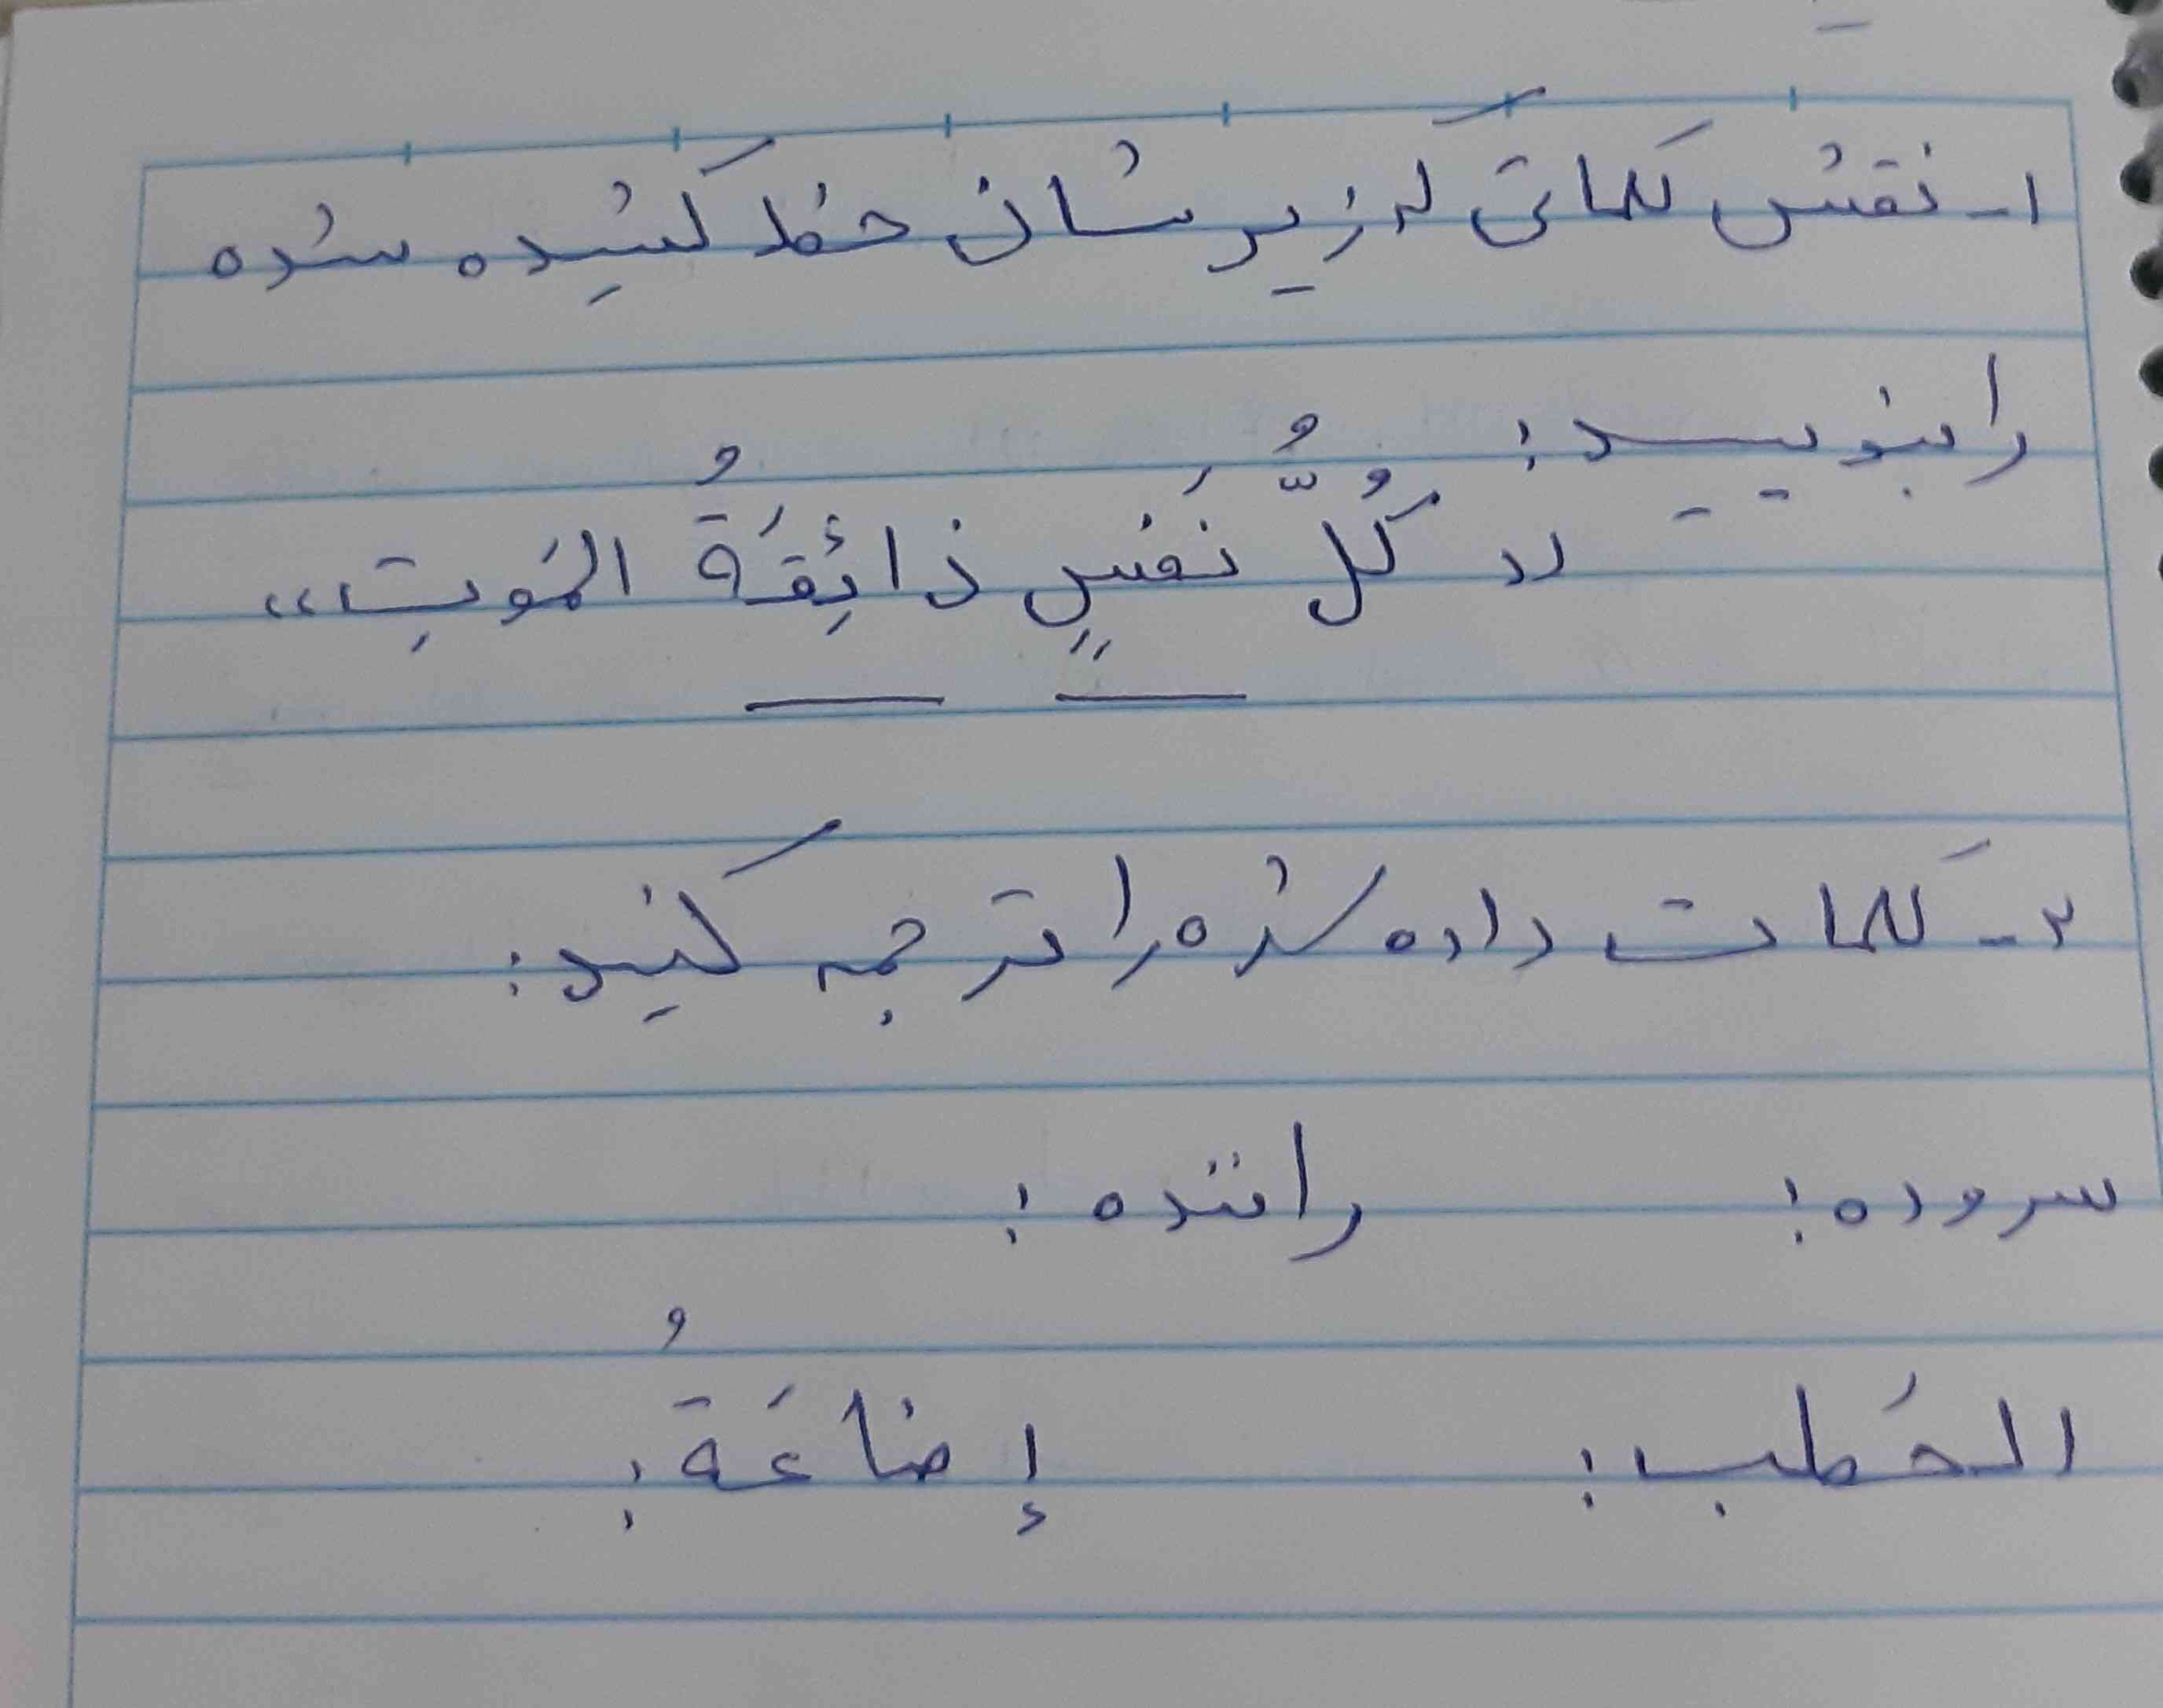 ۱- نقش کلماتی که زیرشان خط کشیده شده
را بنویسید:
«کُلُّ نَفسٍ ذائِقَةُ المَوتِ»
۲- کلمات داده شده را ترجمه کنید:
سروده: راننده:
الحَطب: إضاعَةُ: